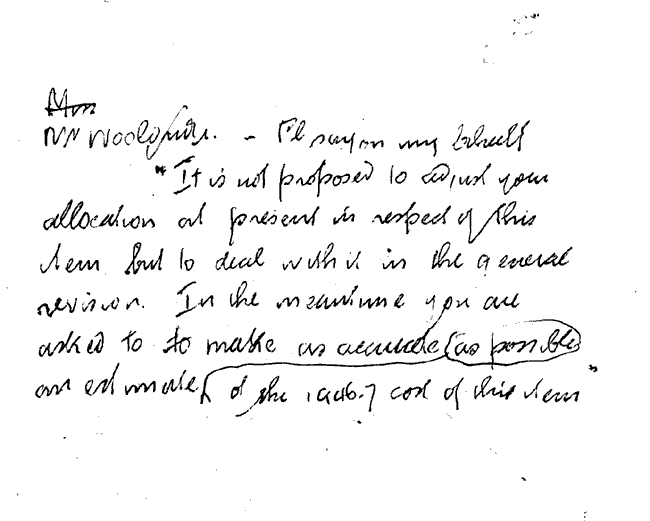 Mr Woolgar. - Pl say on my behalf
"It is not proposed to adjust your
allocation at present in respect of this
item but to deal with it in the general
revision. In the meantime you are
asked to to make as accurate as possible
an estimate of the 1946-7 cost of this item"